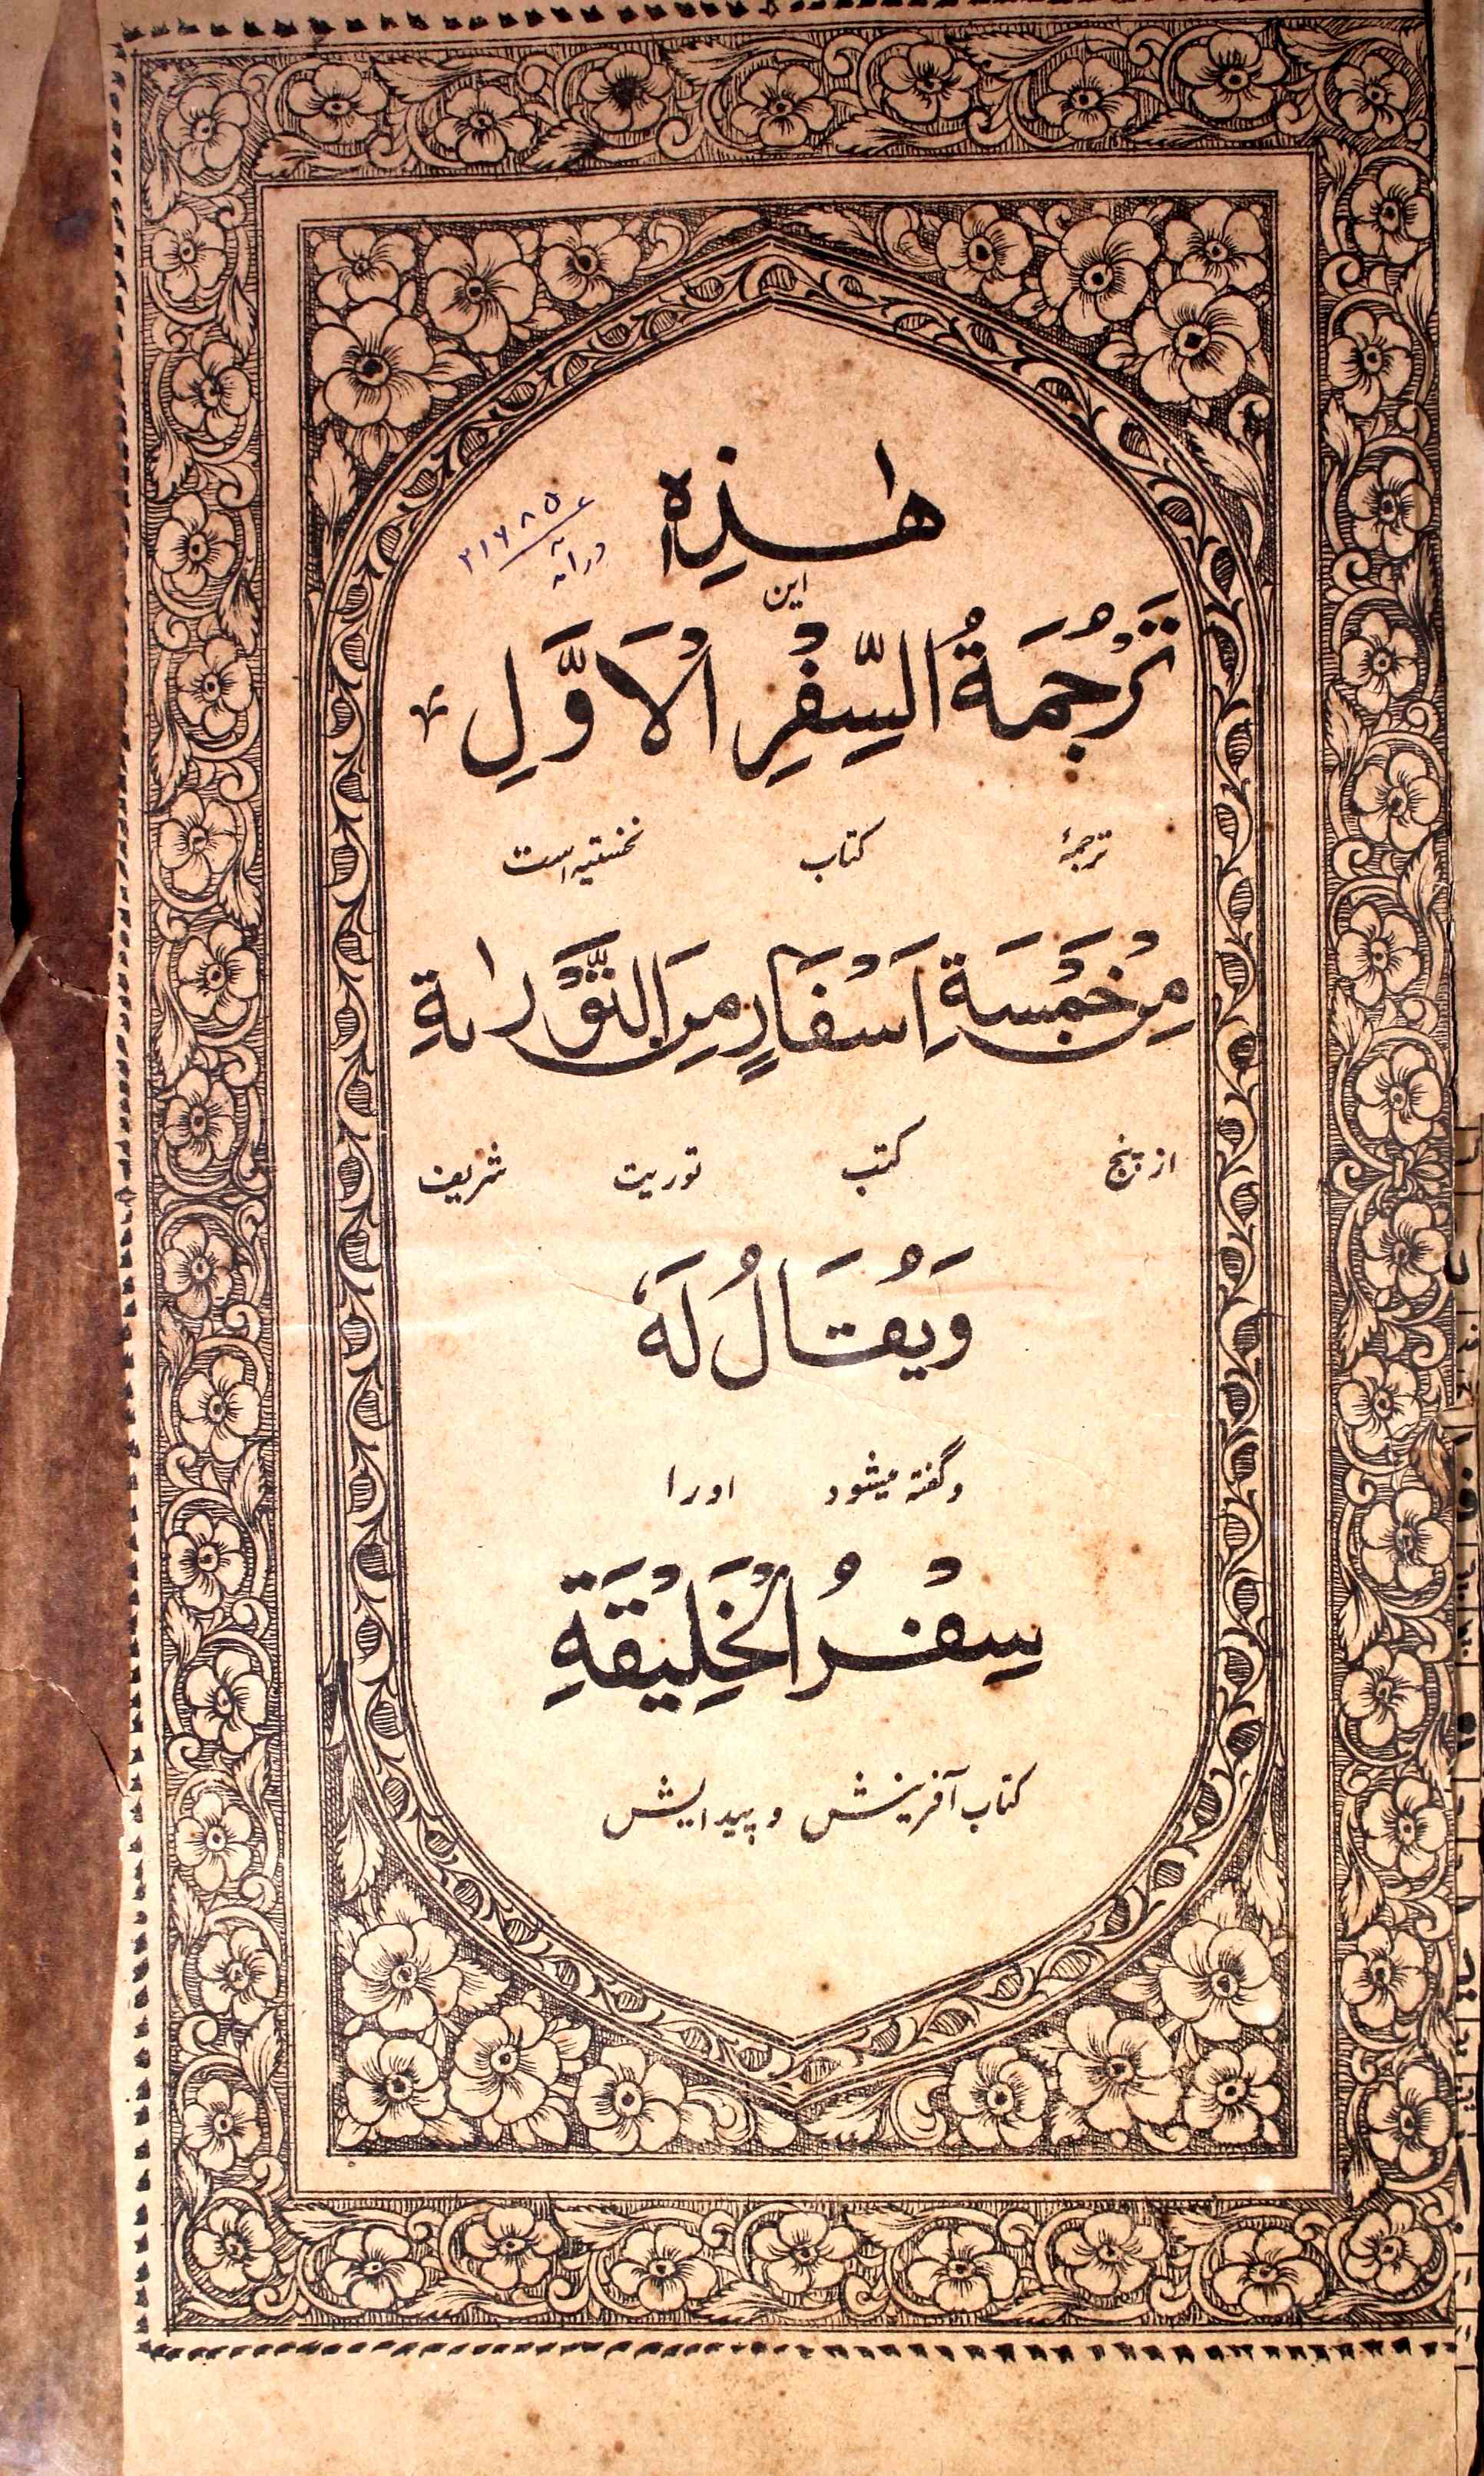 هٰذِهٖ
۲۱۶۸۵
این
تَرْجُمَةُ السِّفْرِ الْاَوَّلِ
ترجمۂ کتاب نخستیه است
مِنْ خَمْسَةِ اَسْفَارٍ مِنَ التَّوْرٰىةِ
از پنج کتب توریت شریف
وَيُقَالُ لَهٗ
و گفته میشود اورا
سِفْرُ الْخَلِيْقَةِ
کتاب آفرینش و پیدایش